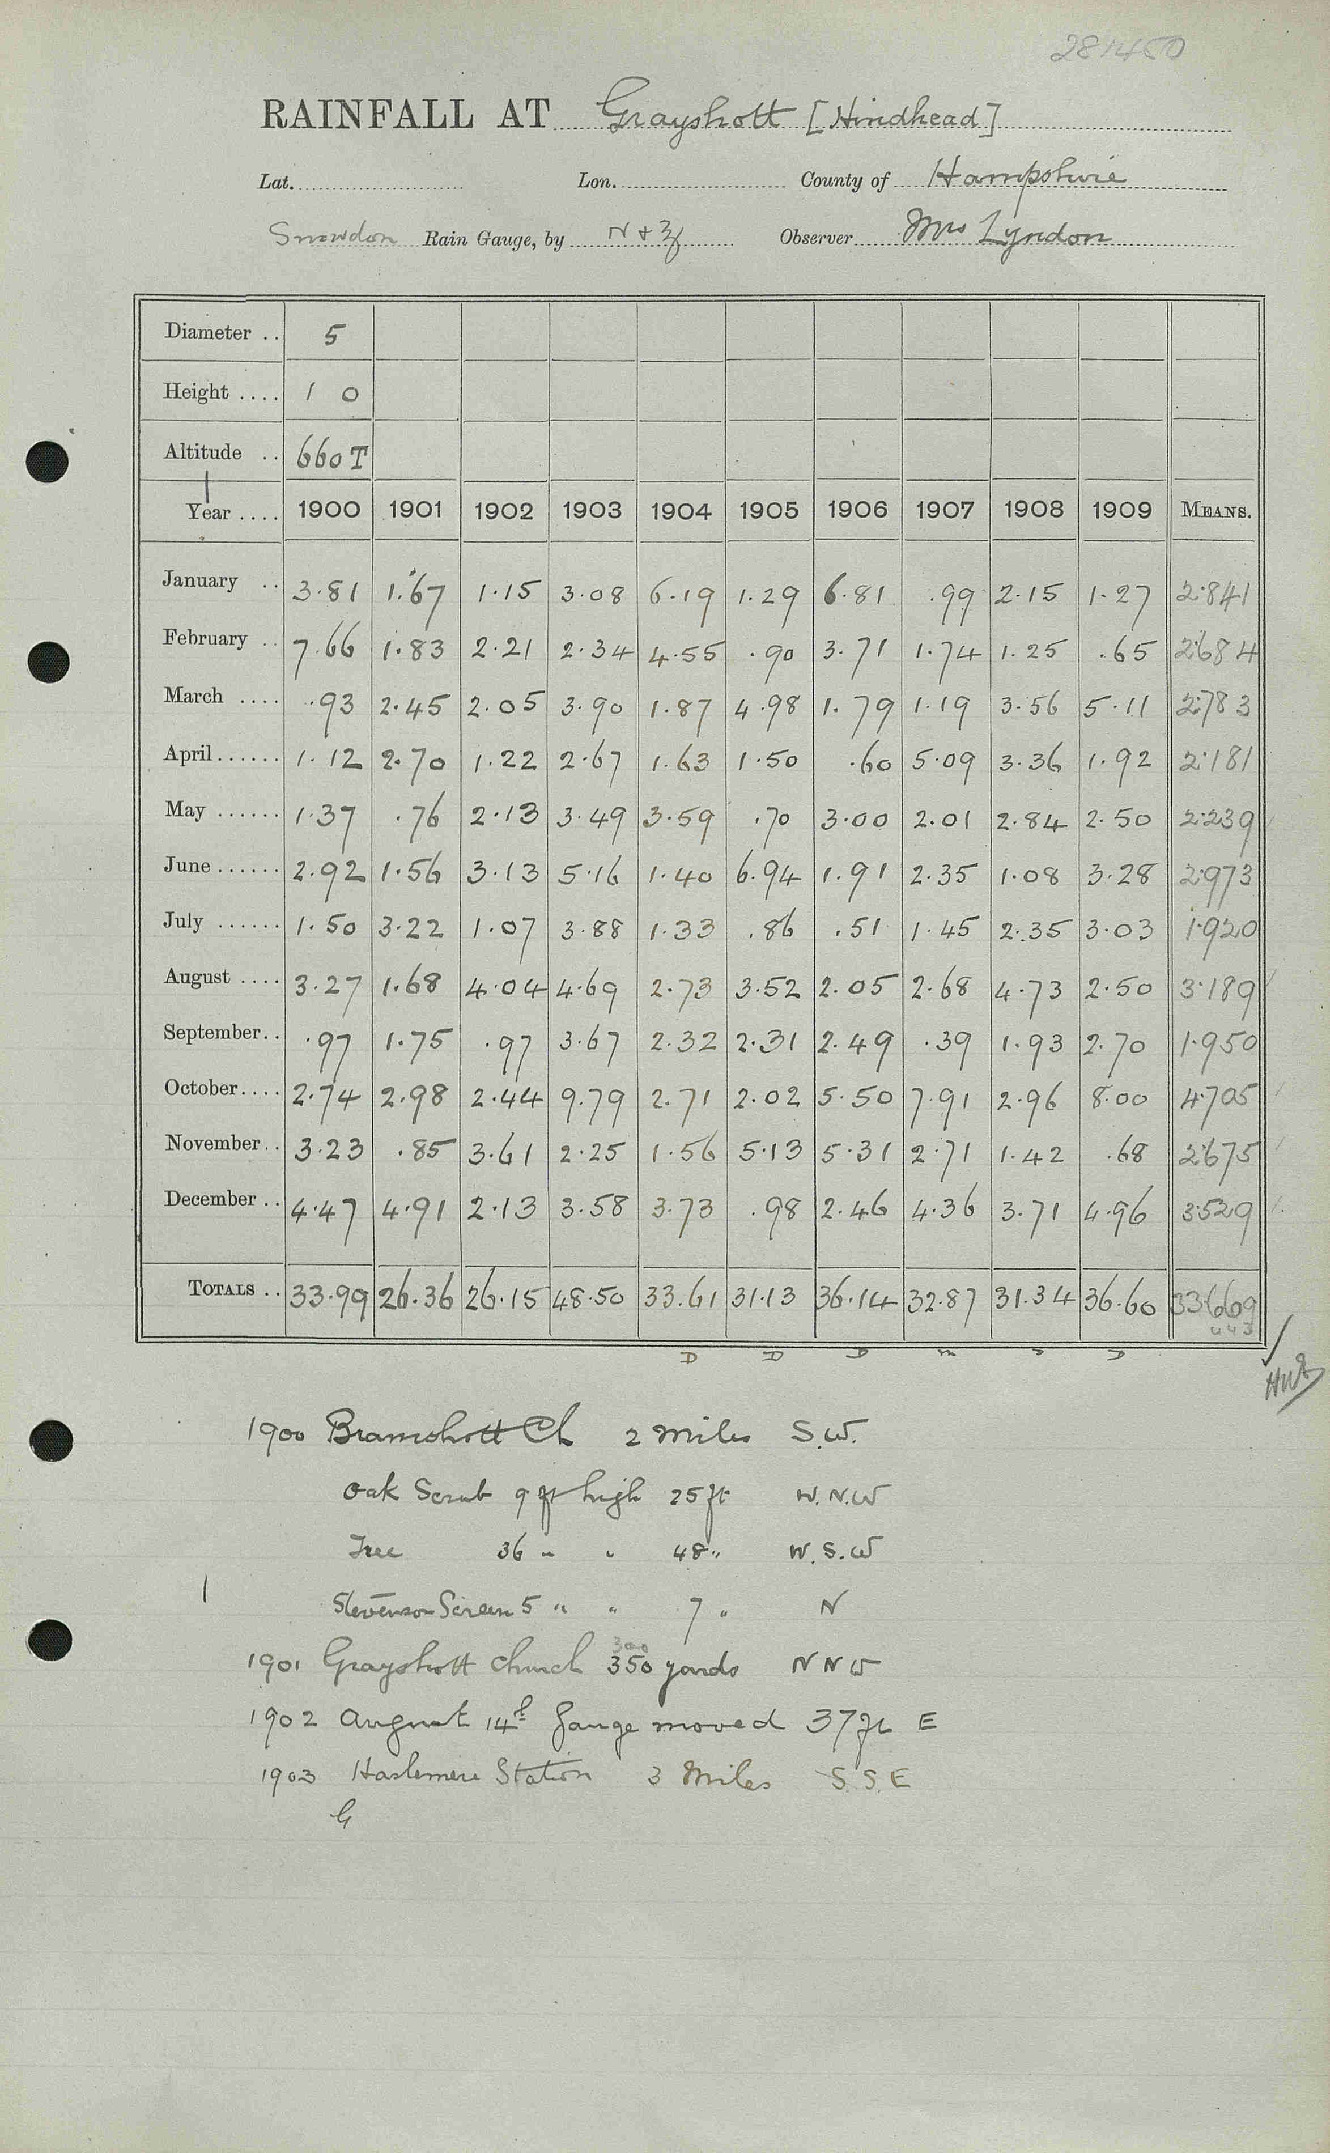 281450
RAINFALL AT Grayshott [Hindhead]
Lat. Lon. County of Hampshire
Snowdon Rain Gauge, by N + Z Observer Mrs Lyndon
Diameter .. 5
Height .... 1 0
Altitude .. 660 T
Year .... 1900 1901 1902 1903 1904 1905 1906 1907 1908 1909 MEANS.
January .. 3.81 1.67 1.15 3.08 6.19 1.29 6.81 .99 2.15 1.27 2.841
February .. 7.66 1.83 2.21 2.34 4.55 .90 3.71 1.74 1.25 .65 2.684
March .... .93 2.45 2.05 3.90 1.87 4.98 1.79 1.19 3.56 5.11 2.783
April ...... 1.12 2.70 1.22 2.67 1.63 1.50 .60 5.09 3.36 1.92 2.181
May ...... 1.37 .76 2.13 3.49 3.59 .70 3.00 2.01 2.84 2.50 2.239
June ...... 2.92 1.56 3.13 5.16 1.40 6.94 1.91 2.35 1.08 3.28 2.973
July ...... 1.50 3.22 1.07 3.88 1.33 .86 .51 1.45 2.35 3.03 1.920
August .... 3.27 1.68 4.04 4.69 2.73 3.52 2.05 2.68 4.73 2.50 3.189
September .. .97 1.75 .97 3.67 2.32 2.31 2.49 .39 1.93 2.70 1.950
October .... 2.74 2.98 2.44 9.79 2.71 2.02 5.50 7.91 2.96 8.00 4.705
November .. 3.23 .85 3.61 2.25 1.56 5.13 5.31 2.71 1.42 .68 2.675
December .. 4.47 4.91 2.13 3.58 3.73 .98 2.46 4.36 3.71 4.96 3.529
TOTALS .. 33.99 26.36 26.15 48.50 33.61 31.13 36.14 32.87 31.34 36.60 33.669
D D D m s D
1900 Bramshott Ch 2 Miles S.W.
Oak Scrub 9 ft high 25 ft W.N.W
Tree 36 " " 48 " W.S.W
Stevenson Screen 5 " " 7 " N
300
1901 Grayshott Church 350 yards N N W
1902 August 14th Gauge moved 37 ft E
1903 Haslemere Station 3 Miles S.S.E
G